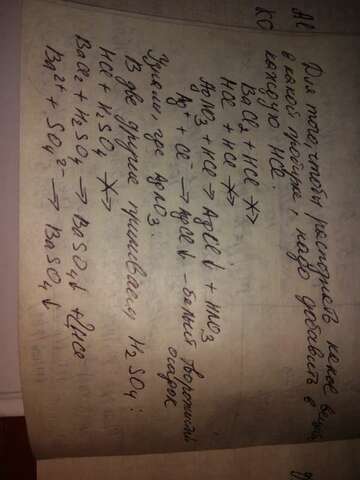 Al
KC
Для того, чтобы распознать какое
в какой пробирке, надо добавить в
каждую HCl.
BaCl₂ + HCl ↛
HCl + HCl ↛
AgNO₃ + HCl → AgCl↓ + HNO₃
Ag⁺ + Cl⁻ → AgCl↓ - белый творожистый
осадок
Узнали, где AgNO₃.
В две другие приливаем H₂SO₄:
HCl + H₂SO₄ ↛
BaCl₂ + H₂SO₄ → BaSO₄↓ + 2HCl
Ba²⁺ + SO₄²⁻ → BaSO₄↓